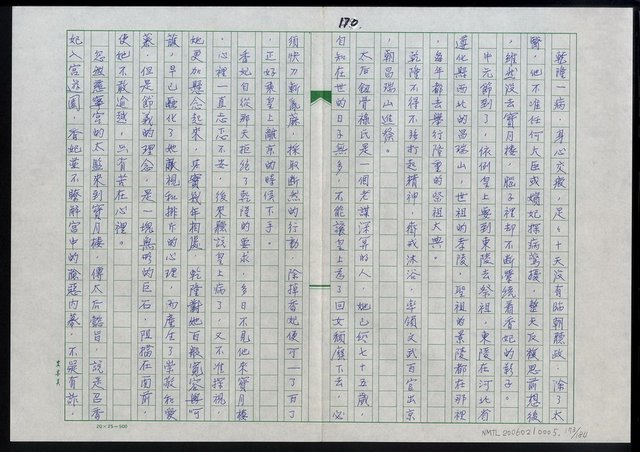 170.
乾隆一病，身心交疲，足足十天沒有臨朝聽政，除了太
醫，他不准任何大臣或嬪妃探病驚擾，整天反複思前想後
，雖然沒去寶月樓，腦子裡却不斷縈繞着香妃的影子。
中元節到了，依例皇上要到東陵去祭祖，東陵在河北省
遵化縣西北的昌瑞山，世祖的孝陵，聖祖的景陵都在那裡
，每年都去舉行隆重的祭祖大典。
乾隆不得不強打起精神，齊戒沐浴，率領文武百官出京
，朝昌瑞山進發。
太后鈕骨祿氏是一個老謀深算的人，她已經七十五歲，
自知在世的日子無多，不能讓皇上為了回女頹廢下去，必
須快刀斬亂麻，採取斷然的行動，除掉香妃便可一了百了
，正好乘皇上離京的時候下手。
香妃自從那天拒絕了乾隆的要求，多日不見他來寶月樓
，心裡一直忐忑不安，後來聽說皇上病了，又不准探視，
她更加懸念起來，其實幾年相處，乾隆對她百般寬容與呵
護，早已融化了她敵視和排斥的心理，而產生了崇敬和愛
慕，但是節義的理念，是一塊無形的巨石，阻擋在面前，
使他不敢逾越，只有苦在心裡。
忽然慈寧宮的太監來到寶月樓，傳太后懿旨，說是召香
妃入宮遊園，香妃並不瞭解宮中的險惡內幕，不疑有詐，
20×25＝500
NMTL 20060210005. 173/184